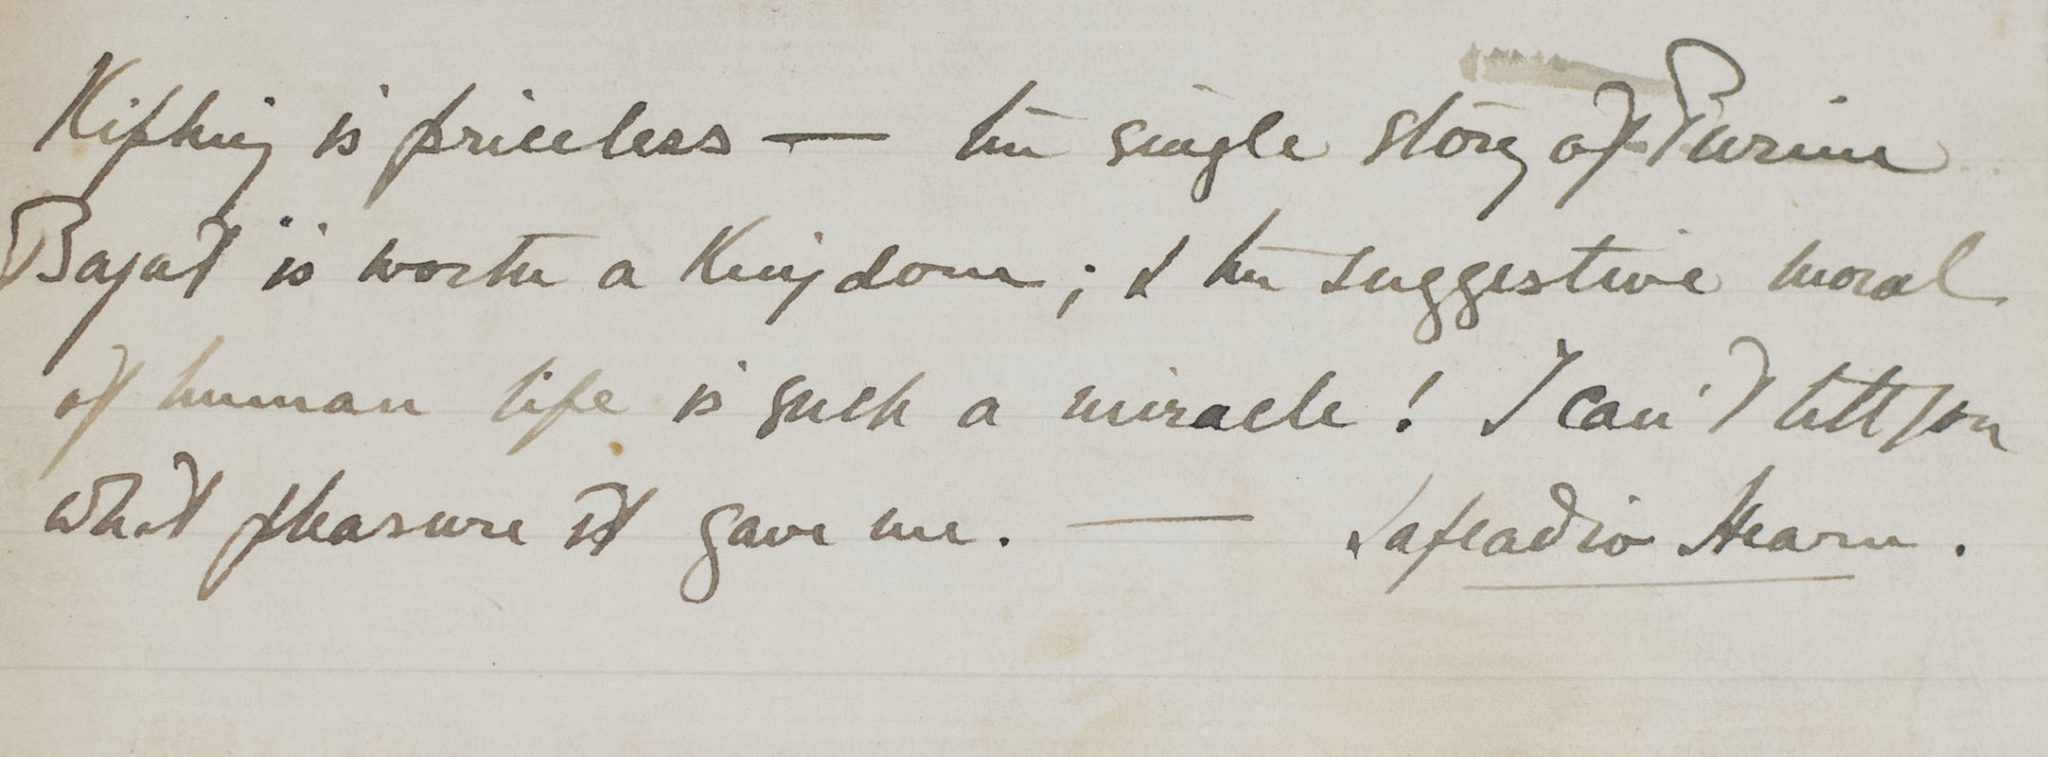 Kipling is priceless — the single story of Purim
Bagat is worth a Kingdom; & the suggestive moral
of human life is such a miracle! I can't tell you
what pleasure it gave me. — Lafcadio Hearn.